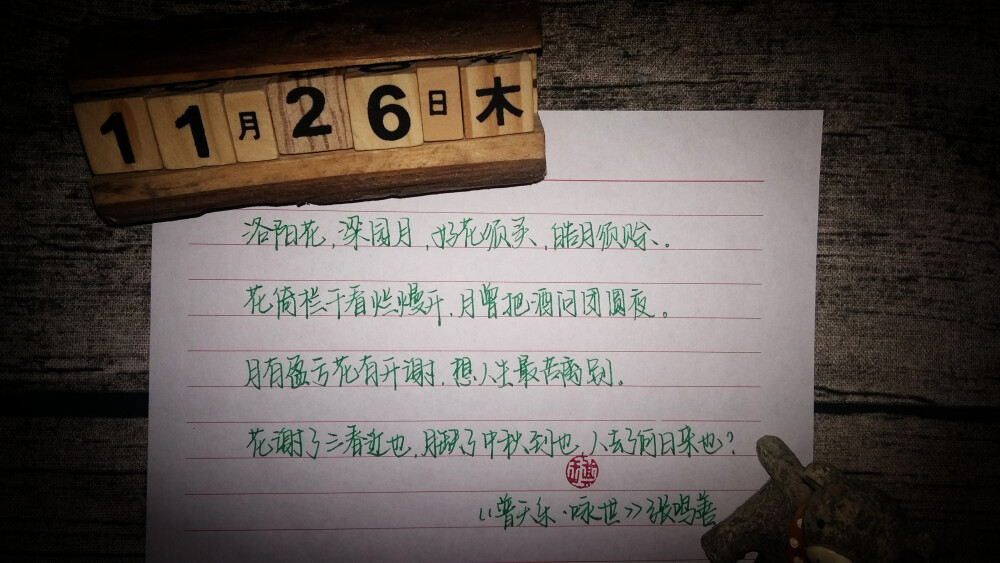 11月26日木
洛阳花,梁园月,好花须买,皓月须赊。
花倚栏干看烂熳开,月曾把酒问团圆夜。
月有盈亏花有开谢,想人生最苦离别。
花谢了三春近也,月缺了中秋到也,人去了何日来也?
《普天乐·咏世》张鸣善